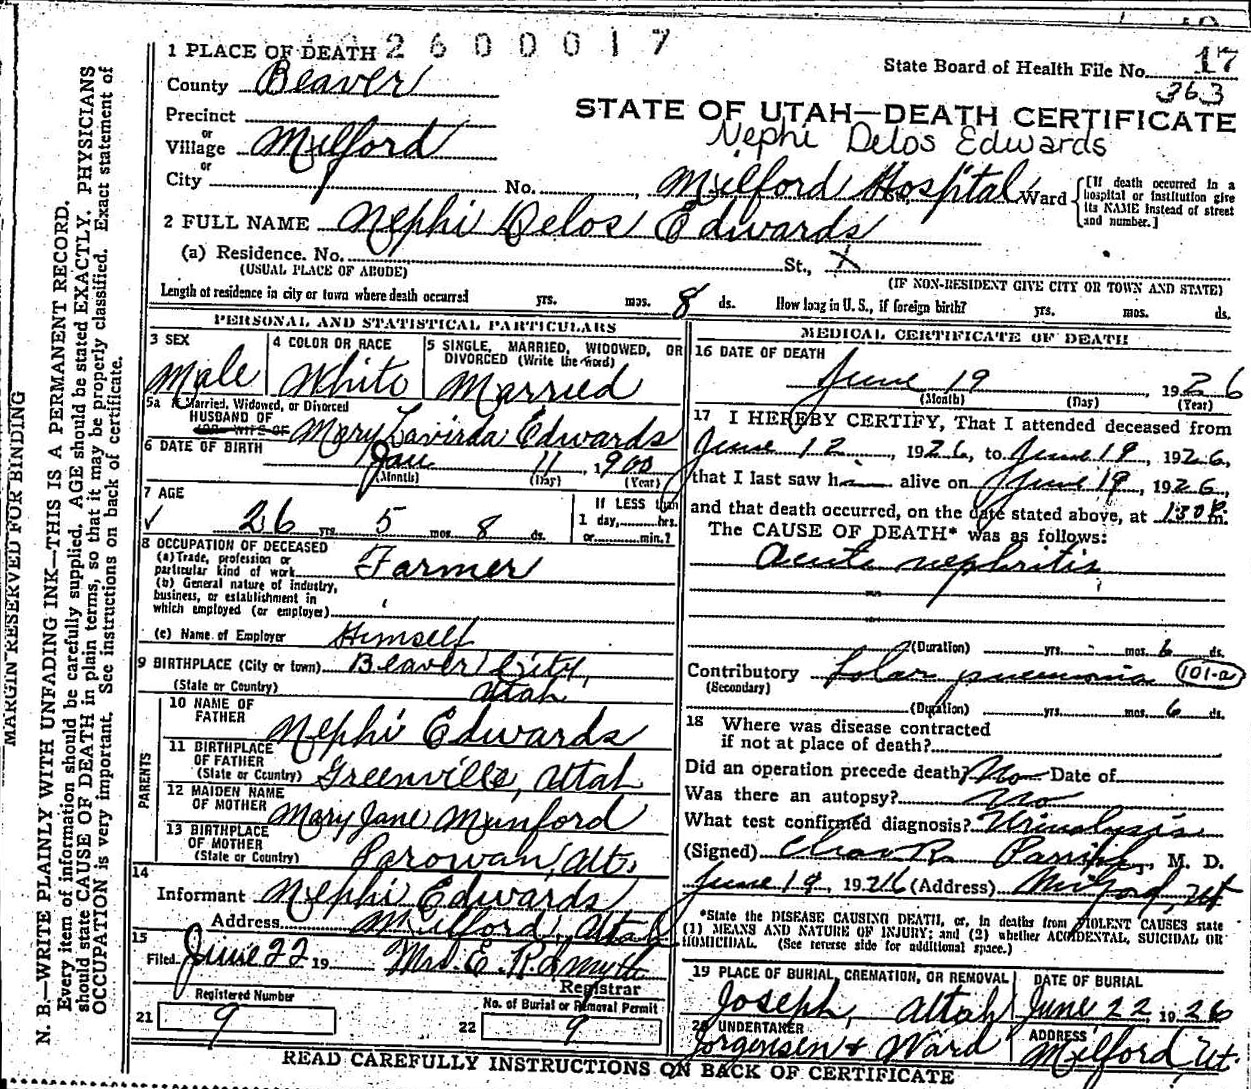 2 6 0 0 0 1 7
1 PLACE OF DEATH
State Board of Health File No. 17
363
County Beaver
STATE OF UTAH—DEATH CERTIFICATE
Precinct
Nephi Delos Edwards
or
Village Milford
or
City No. , Milford Hospital Ward
[If death occurred in a hospital or institution give its NAME instead of street and number.]
2 FULL NAME Nephi Delos Edwards
(a) Residence. No. St., X
(USUAL PLACE OF ABODE) (IF NON-RESIDENT GIVE CITY OR TOWN AND STATE)
Length of residence in city or town where death occurred yrs. mos. 8 ds. How long in U. S., if foreign birth? yrs. mos. ds.
PERSONAL AND STATISTICAL PARTICULARS
3 SEX
Male
4 COLOR OR RACE
White
5 SINGLE, MARRIED, WIDOWED, OR DIVORCED (Write the word)
Married
5a If Married, Widowed, or Divorced
HUSBAND OF
(OR) WIFE OF Mary Lavirda Edwards
6 DATE OF BIRTH Jan 11, 1900
(Month) (Day) (Year)
7 AGE
26 yrs. 5 mos. 8 ds.
If LESS than
1 day, hrs.
or min.?
8 OCCUPATION OF DECEASED
(a) Trade, profession or
particular kind of work Farmer
(b) General nature of industry,
business, or establishment in
which employed (or employer)
(c) Name of Employer Himself
9 BIRTHPLACE (City or town) Beaver City,
(State or Country) Utah
PARENTS
10 NAME OF
FATHER Nephi Edwards
11 BIRTHPLACE
OF FATHER
(State or Country) Greenville, Utah
12 MAIDEN NAME
OF MOTHER Mary Jane Munford
13 BIRTHPLACE
OF MOTHER
(State or Country) Parowan, Ut.
14
Informant Nephi Edwards
Address Milford, Utah
15
Filed June 22 19 Mrs. E. R. Smyth
Registrar
Registered Number
21 9
No. of Burial or Removal Permit
22 9
MEDICAL CERTIFICATE OF DEATH
16 DATE OF DEATH
June 19 1926
(Month) (Day) (Year)
17 I HEREBY CERTIFY, That I attended deceased from
June 12, 1926, to June 19, 1926,
that I last saw h alive on June 19, 1926,
and that death occurred, on the date stated above, at 130 P. m.
The CAUSE OF DEATH* was as follows:
Acute nephritis
(Duration) yrs. mos. 6 ds.
Contributory Lobar pneumonia 101-a
(Secondary)
(Duration) yrs. mos. 6 ds.
18 Where was disease contracted
if not at place of death?
Did an operation precede death? No Date of
Was there an autopsy? No
What test confirmed diagnosis? Urinalysis
(Signed) Parrish, M. D.
June 19, 1926 (Address) Milford, Ut
*State the DISEASE CAUSING DEATH, or, in deaths from VIOLENT CAUSES state
(1) MEANS AND NATURE OF INJURY; and (2) whether ACCIDENTAL, SUICIDAL OR
HOMICIDAL. (See reverse side for additional space.)
19 PLACE OF BURIAL, CREMATION, OR REMOVAL
Joseph, Utah
DATE OF BURIAL
June 22, 1926
20 UNDERTAKER
Jorgensen & Ward
ADDRESS
Milford, Ut.
READ CAREFULLY INSTRUCTIONS ON BACK OF CERTIFICATE
MARGIN RESERVED FOR BINDING
N. B.—WRITE PLAINLY WITH UNFADING INK—THIS IS A PERMANENT RECORD.
Every item of information should be carefully supplied. AGE should be stated EXACTLY. PHYSICIANS
should state CAUSE OF DEATH in plain terms, so that it may be properly classified. Exact statement of
OCCUPATION is very important. See instructions on back of certificate.